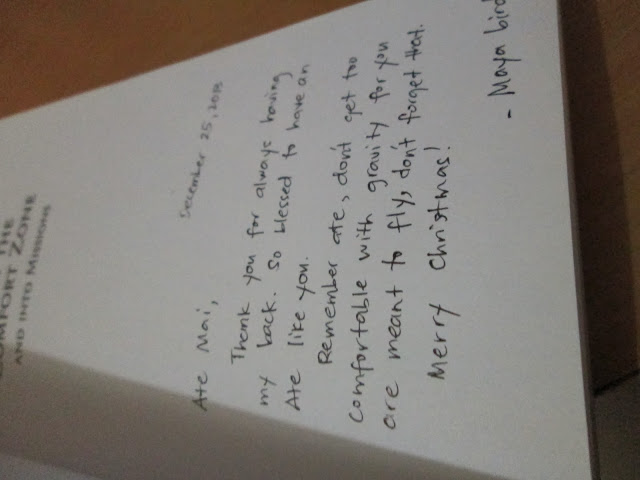 THE
COMFORT ZONE
AND INTO MISSIONS
December 25, 2013
Ate Mai,
Thank you for always having
my back. So blessed to have an
Ate like you.
Remember ate, don't get too
comfortable with gravity for you
are meant to fly, don't forget that.
Merry Christmas!
- Maya bird